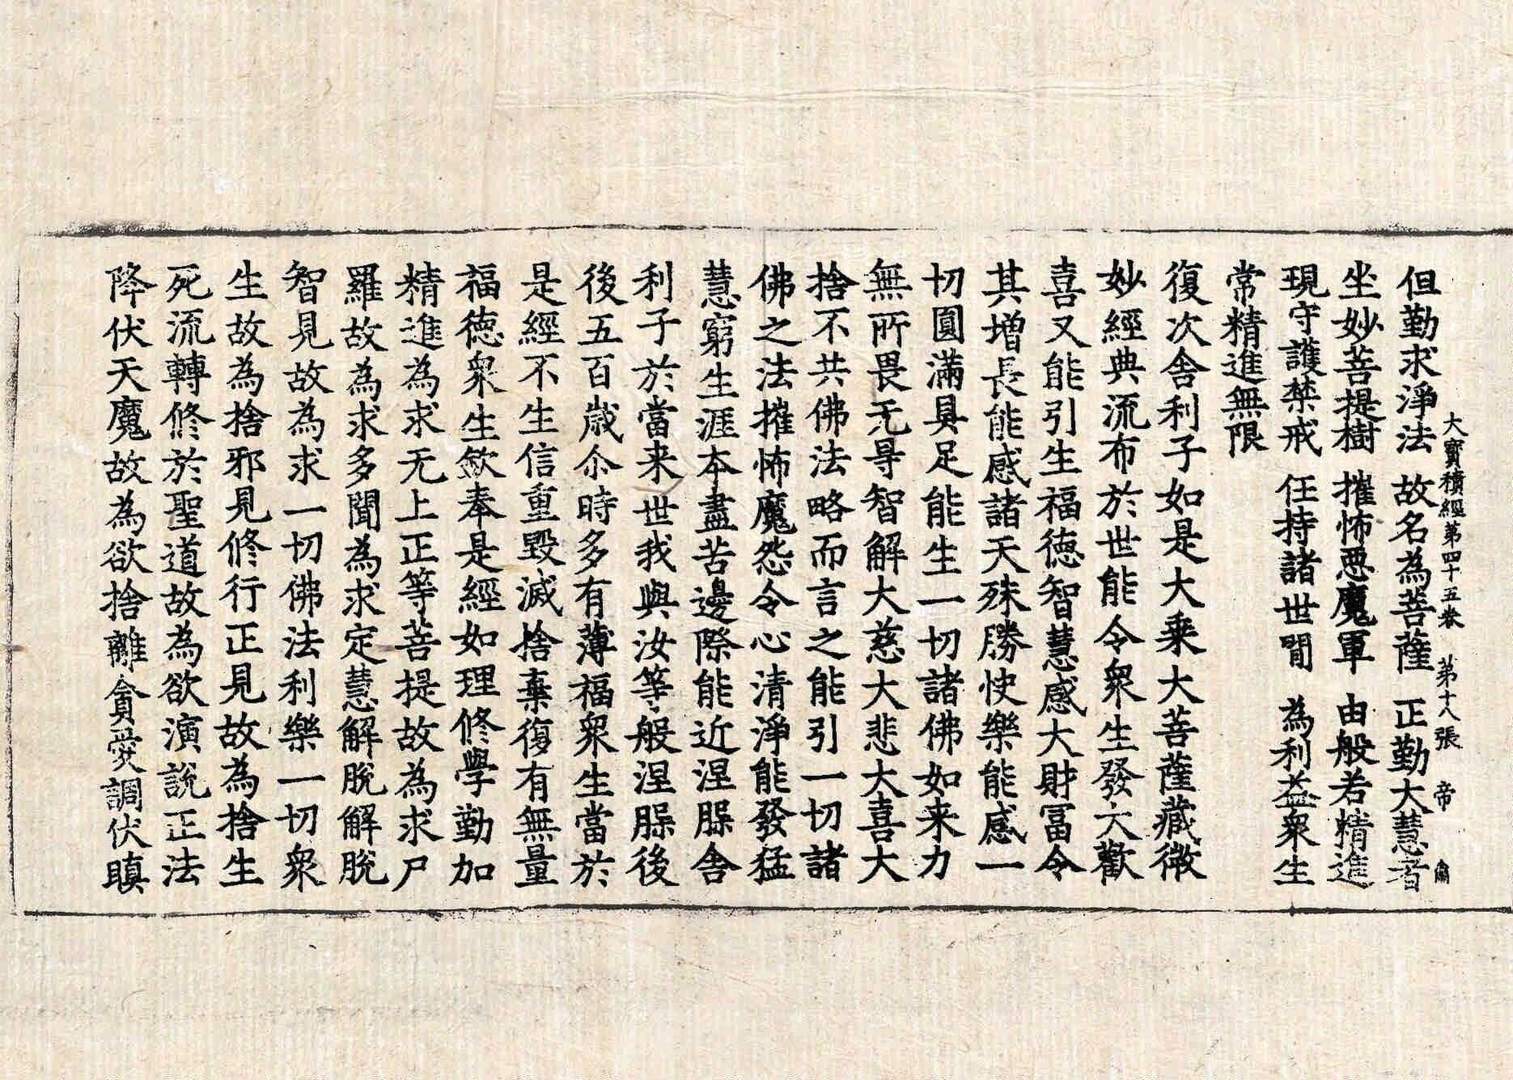 大寶積經第四十五卷　第十八張　帝
但勤求淨法　故名為菩薩　正勤大慧者
坐妙菩提樹　摧怖惡魔軍　由般若精進
現守護禁戒　任持諸世間　為利益衆生
常精進無限
復次舍利子如是大乘大菩薩藏微
妙經典流布於世能令衆生發大歡
喜又能引生福德智慧感大財冨令
其增長能感諸天殊勝快樂能感一
切圓滿具足能生一切諸佛如来力
無所畏无㝵智解大慈大悲大喜大
捨不共佛法略而言之能引一切諸
佛之法摧怖魔怨令心清淨能發猛
慧窮生涯本盡苦邊際能近涅槃舍
利子於當来世我與汝等般涅槃後
後五百歲尒時多有薄福衆生當於
是經不生信重毀滅捨棄復有無量
福德衆生欽奉是經如理修學勤加
精進為求无上正等菩提故為求尸
羅故為求多聞為求定慧解脫解脫
智見故為求一切佛法利樂一切衆
生故為捨邪見修行正見故為捨生
死流轉修於聖道故為欲演說正法
降伏天魔故為欲捨離貪愛調伏瞋